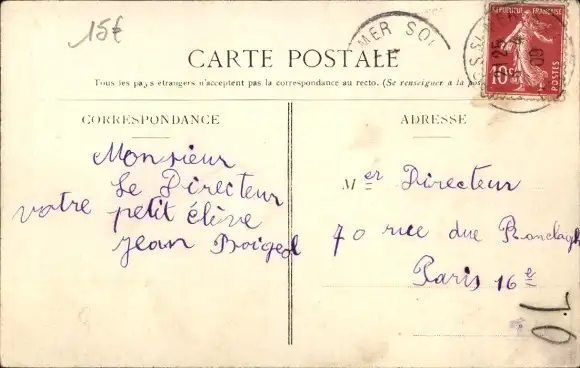 15€
MER SO
CARTE POSTALE
Tous les pays étrangers n'acceptent pas la correspondance au recto. (Se renseigner à la
RÉPUBLIQUE FRANÇAISE
10
POSTES
25
CORRESPONDANCE
Monsieur
Le Directeur
votre petit élève
Jean Boigeol
ADRESSE
Mer Directeur
70 rue du Ranelagh
Paris 16e